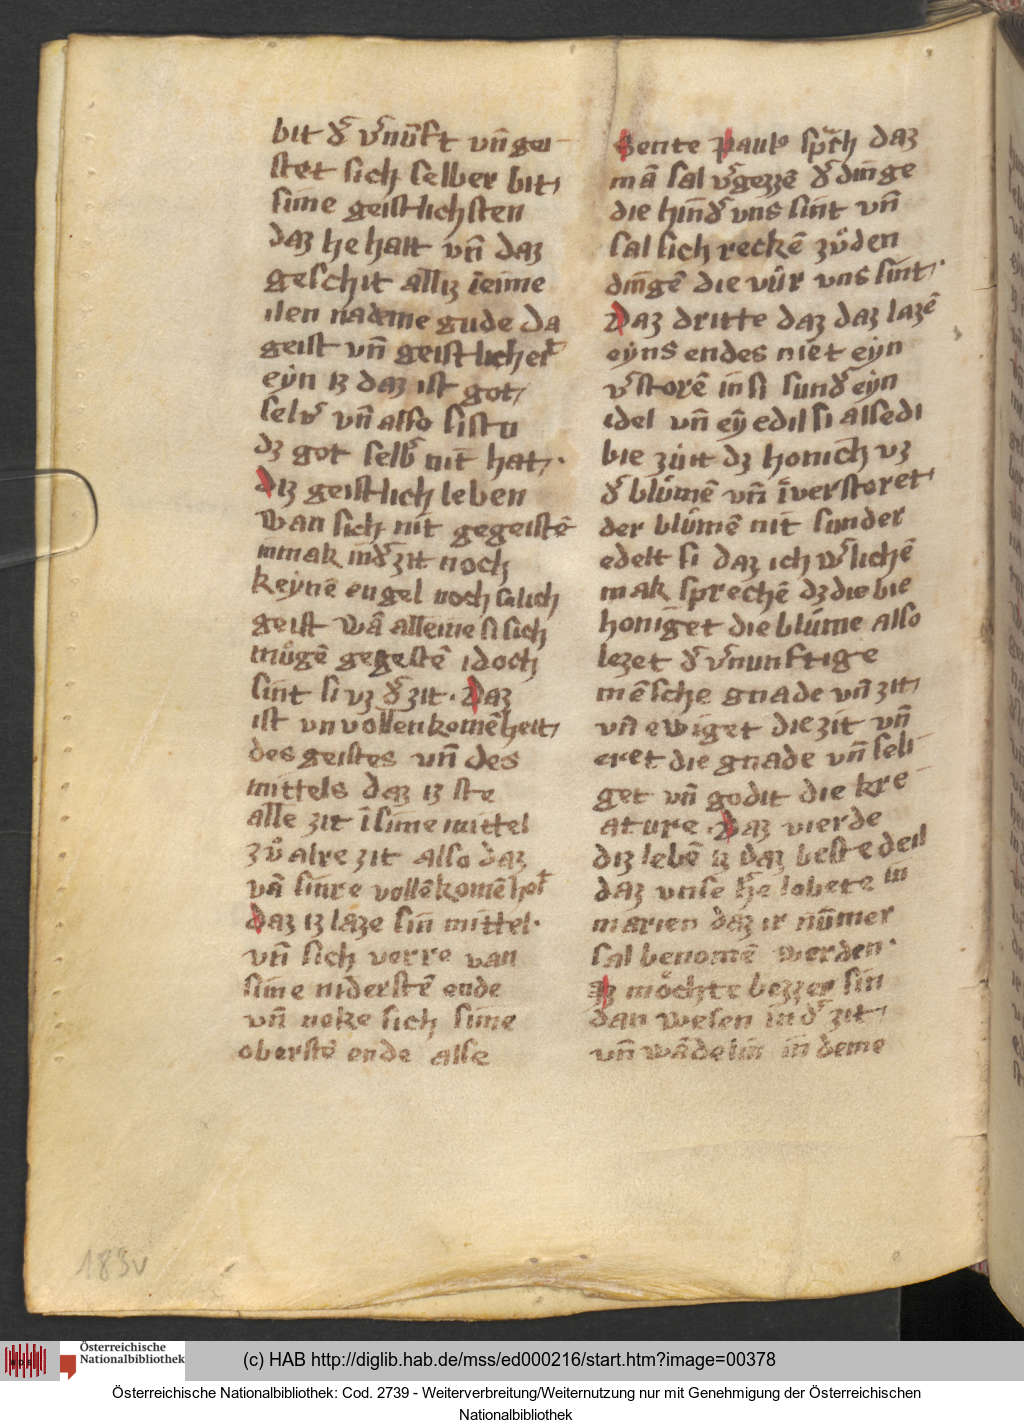 bit dˀ vˀnuͤft vn̄ gei
stet sich selber bit,
sime geistlichsten
daz he hait vn̄ daz
geschit alliz i eime
ilen nademe gude da
geist vn̄ geistlicheit
eyn iz daz ist got,
selvˀ vn̄ also sistu
dz got selbˀ nit hat,.
diz geistlich leben
wan sich nit gegeistē
inmak indˀ zit noch
keynē engel noch salich
geist wā alleine si sich
muͦgē gegestē idoch
sint si vz dˀ zit. Daz
ist vnvollenkomēheit,
des geistes vn̄ des
mittels daz iz ste
alle zit ī sime mittel
zuͦ alre zit also daz
vā sinre vollēkomēheit
daz iz laze sin mittel.
vn̄ sich verre van
sime niderstē ende
vn̄ neke sich sime
oberstē ende alse
Sente Paulˀ sprich daz
mā sal vˀgezzē dˀ dinge
die hindˀ vns sint vn̄
sal sich reckē zuͦ den
dingē die vuͦr vns sint,.
Daz dritte daz daz lazē
eyns endes niet eyn
vˀstorē in si sundˀ eyn
idel vn̄ ey edil si alse di
bie zuit dz honich vz
dˀ bluͦmē vn̄ īverstoret,
der bluͦmē nit sunder
edelt si daz ich wˀlichē
mak sprechē dz die bie
honiget die bluͦme also
lezet dˀ vˀnunftige
mēsche gnade vn̄ zit,
vn̄ ewiget die zit vn̄
eret die gnade vn̄ seli
get vn̄ godit die kre
ature. Daz vierde
diz lebē iz daz beste deil
daz vnse hˀe lobete in
marien daz ir nūmer
sal benomē werden.
Iz moͤchte bezzer sin
dan wesen in dˀ zit,
vn̄ wādelin in deme
183v
Österreichische
Nationalbibliothek
(c) HAB http://diglib.hab.de/mss/ed000216/start.htm?image=00378
Österreichische Nationalbibliothek: Cod. 2739 - Weiterverbreitung/Weiternutzung nur mit Genehmigung der Österreichischen
Nationalbibliothek